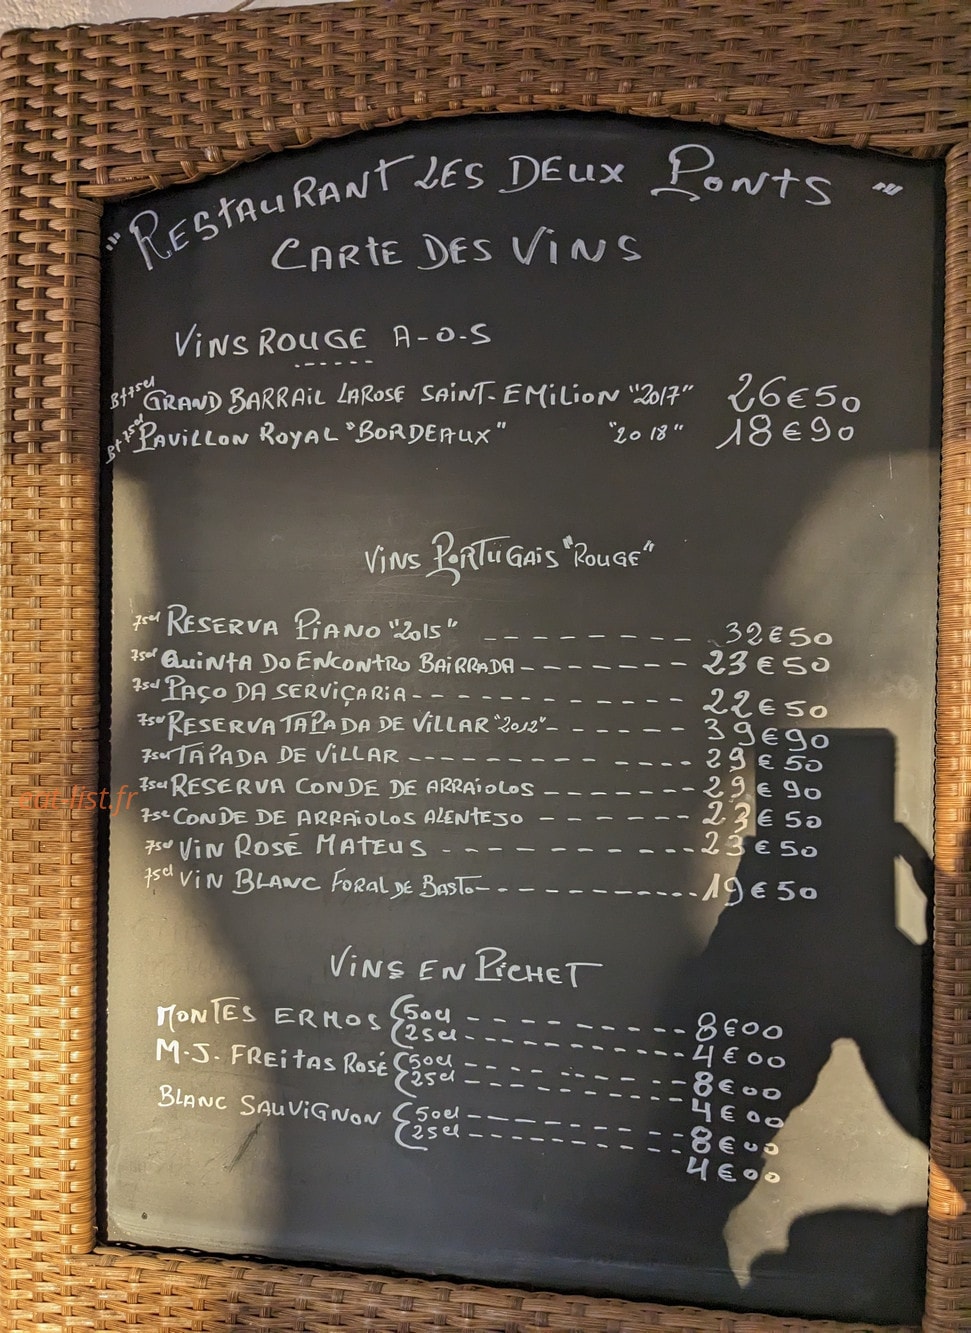 "RESTAURANT LES DEUX PONTS"
CARTE DES VINS
VINS ROUGE A-O-S
Bt 75cl GRAND BARRAIL LAROSE SAINT-EMILION "2017" 26€50
Bt 75cl PAVILLON ROYAL "BORDEAUX" "2018" 18€90
VINS PORTUGAIS "ROUGE"
75cl RESERVA PIANO "2015" -------- 32€50
75cl QUINTA DO ENCONTRO BAIRRADA ------- 23€50
75cl PAÇO DA SERVIÇARIA ---------- 22€50
75cl RESERVA TAPADA DE VILLAR "2012" ------ 39€90
75cl TAPADA DE VILLAR ---------- 29€50
75cl RESERVA CONDE DE ARRAIOLOS ------- 29€90
75cl CONDE DE ARRAIOLOS ALENTEJO ------ 23€50
75cl VIN ROSÉ MATEUS ---------- 23€50
75cl VIN BLANC FORAL DE BASTO ---------- 19€50
VINS EN PICHET
MONTES ERMOS 50cl ---------- 8€00
25cl ---------- 4€00
M.J. FREITAS ROSÉ 50cl ---------- 8€00
25cl ---------- 4€00
BLANC SAUVIGNON 50cl ---------- 8€00
25cl ---------- 4€00